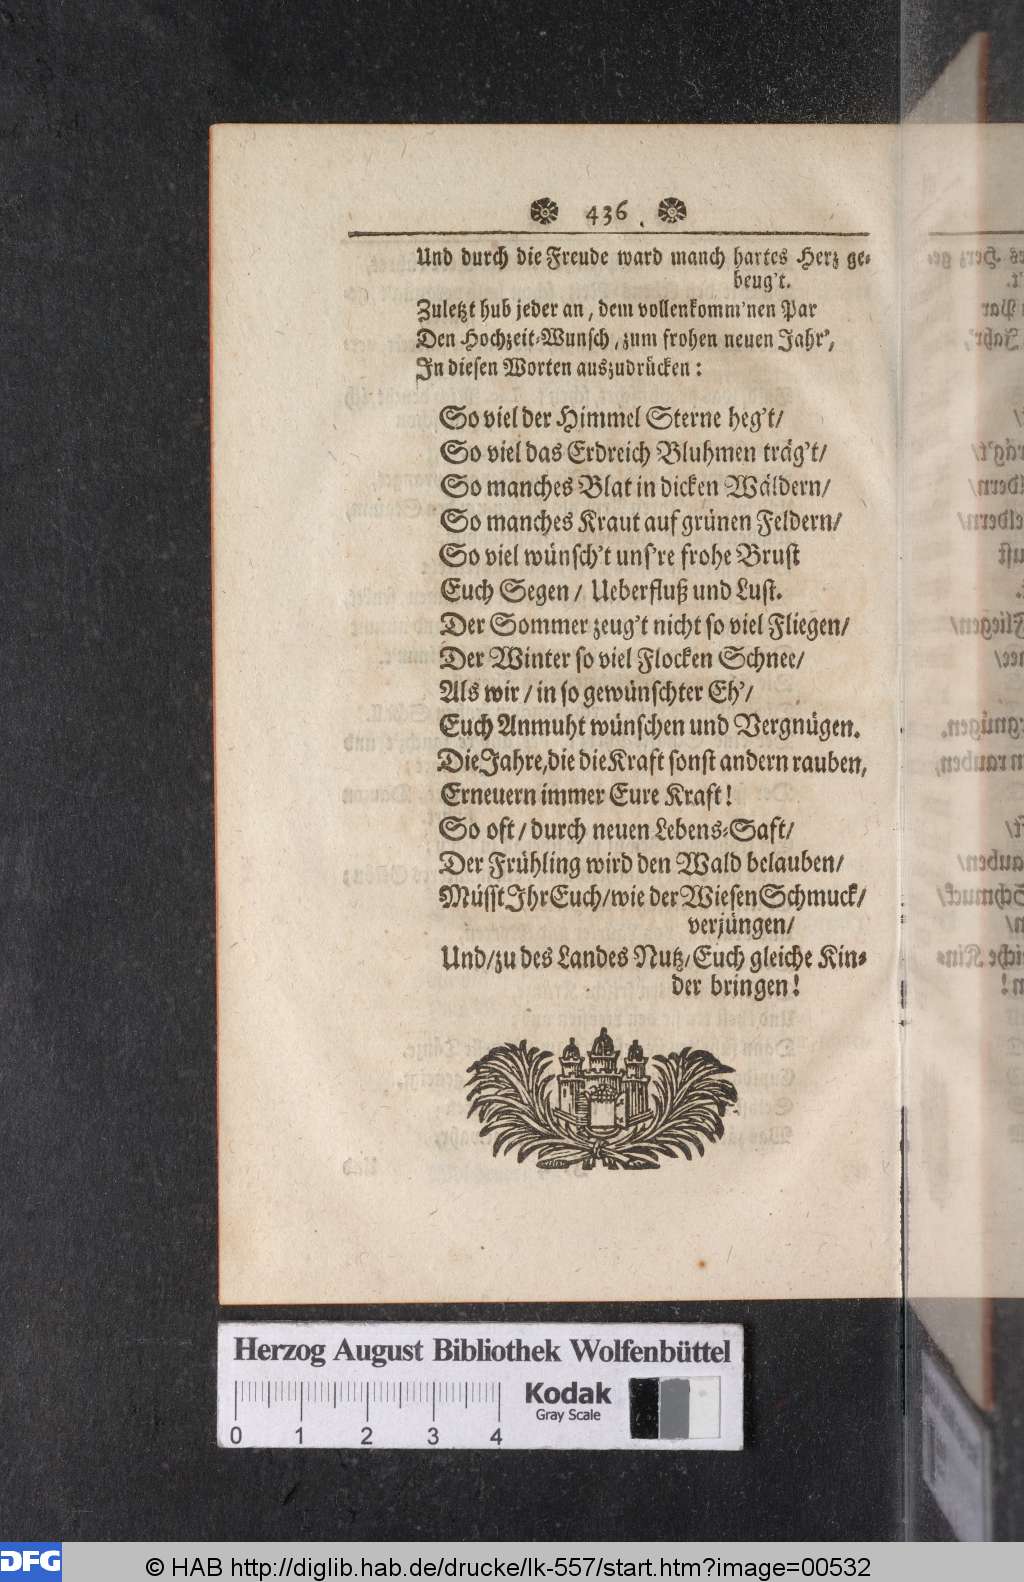 436.
Und durch die Freude ward manch hartes Herz ge-
beug't.
Zuletzt hub jeder an, dem vollenkomm'nen Par
Den Hochzeit-Wunsch, zum frohen neuen Jahr',
In diesen Worten auszudrücken:
So viel der Himmel Sterne heg't/
So viel das Erdreich Bluhmen träg't/
So manches Blat in dicken Wäldern/
So manches Kraut auf grünen Feldern/
So viel wünsch't uns're frohe Brust
Euch Segen / Ueberfluß und Lust.
Der Sommer zeug't nicht so viel Fliegen/
Der Winter so viel Flocken Schnee/
Als wir / in so gewünschter Eh'/
Euch Anmuht wünschen und Vergnügen.
Die Jahre, die die Kraft sonst andern rauben,
Erneuern immer Eure Kraft!
So oft / durch neuen Lebens-Saft/
Der Frühling wird den Wald belauben/
Müsst Ihr Euch/wie der Wiesen Schmuck/
verjüngen/
Und/zu des Landes Nutz/Euch gleiche Kin-
der bringen!
Herzog August Bibliothek Wolfenbüttel
Kodak
Gray Scale
0 1 2 3 4
DFG © HAB http://diglib.hab.de/drucke/lk-557/start.htm?image=00532